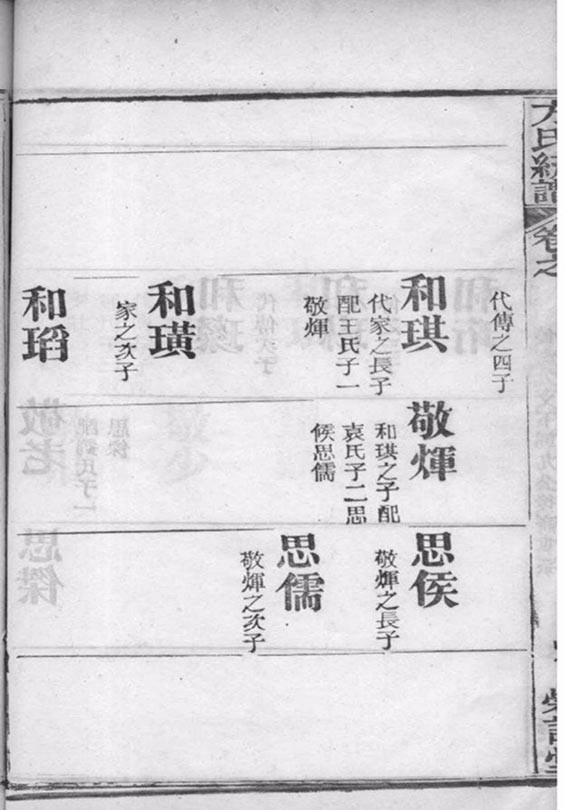 方氏統譜
卷之
代傳之四子
和琪
代家之長子
配王氏子一
敬煇
和璜
家之次子
和瑫
敬煇
和琪之子配
袁氏子二思
侯思儒
思侯
敬煇之長子
思儒
敬煇之次子